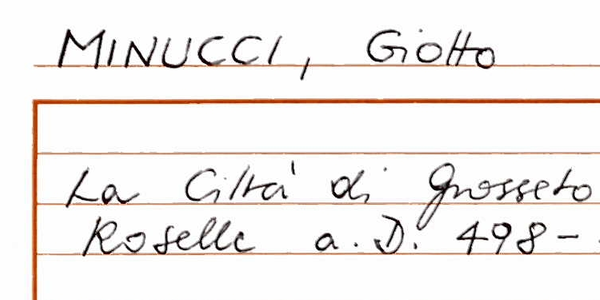 MINUCCI, Giotto
La Città di Grosseto
Roselle a.D. 498-